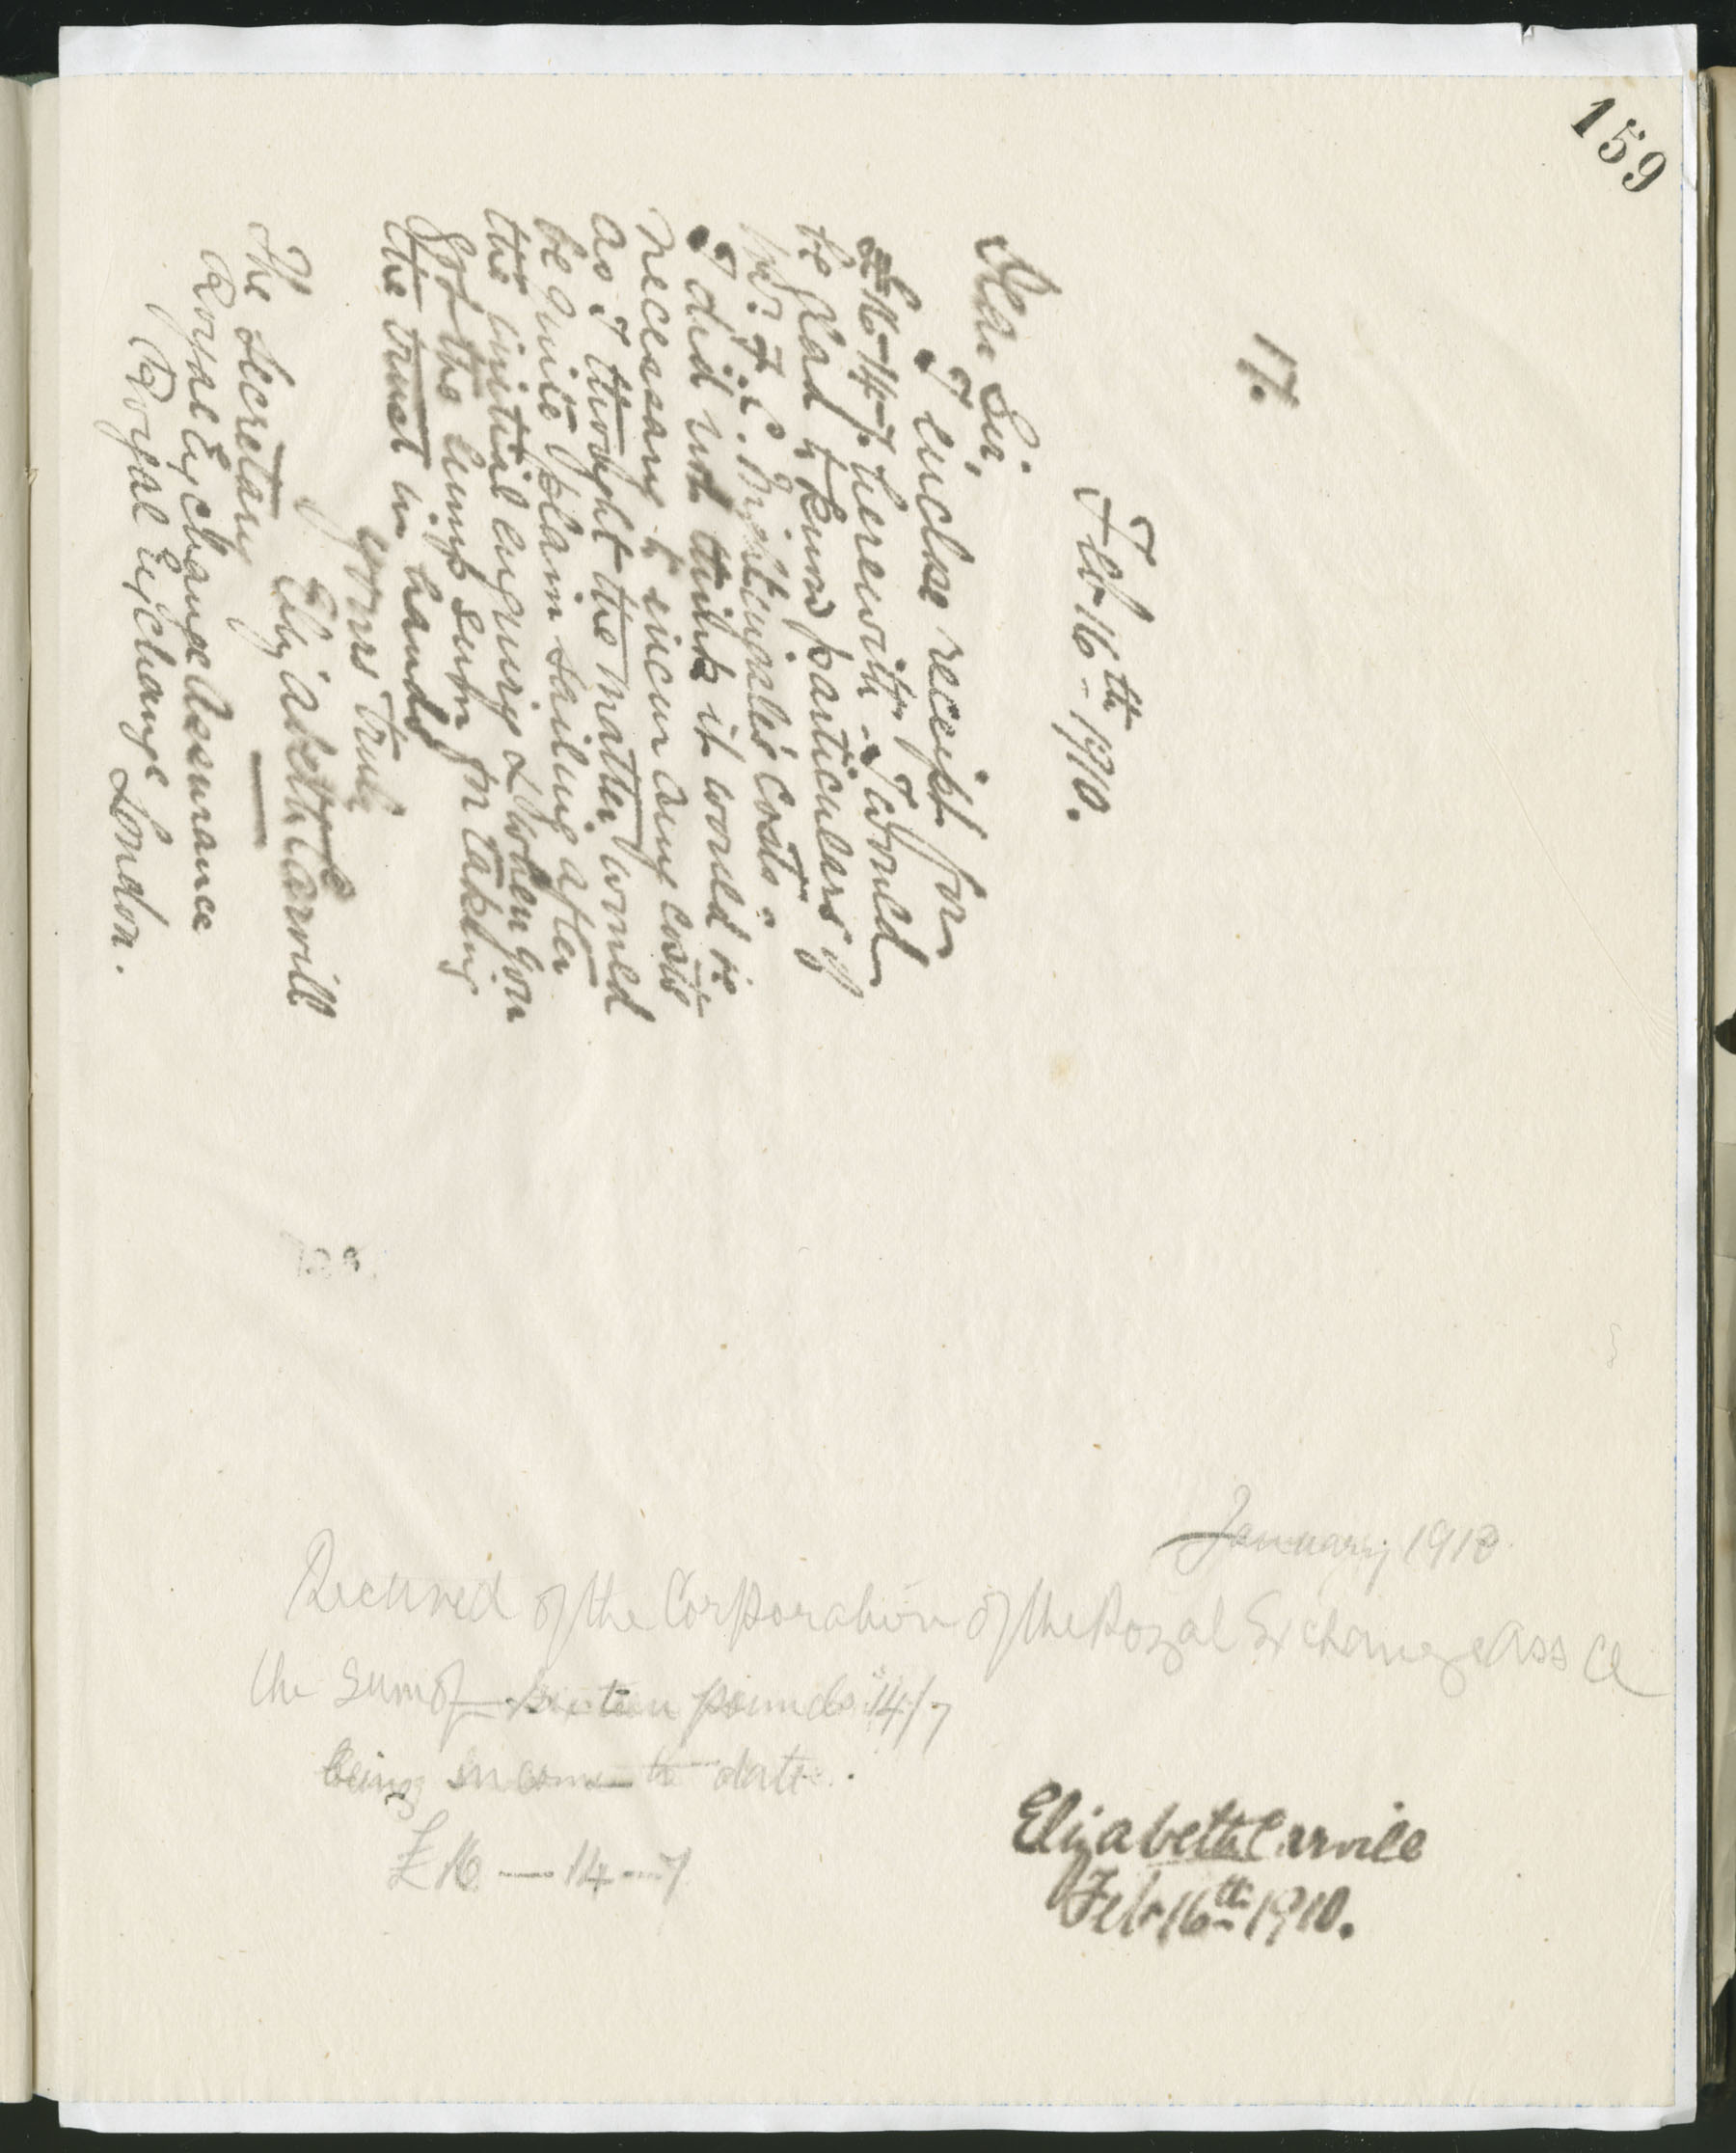 159
17.
Feb 16th - 1910.
Dear Sir,
I enclose receipt for
£16-14-7. herewith - I would
be glad to know particulars of
Mr. F. E. Nightingale's costs.
I did not think it would be
necessary to incur any costs
as I thought the matter would
be quite plain sailing after
the initial enquiry & when you
got the lump sum for taking
the trust in hands
Yours truly
Elizabeth Carvill
The Secretary
Royal Exchange Assurance
Royal Exchange London.
January 1910
Received of the Corporation of the Royal Exchange Ass Ce
the sum of sixteen pounds 14/7
being income to date.
£16 — 14 — 7
Elizabeth Carvill
Feb 16th 1910.